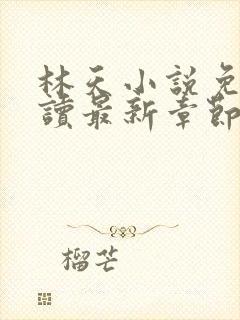 林天小說免
讀最新章節
榴芒